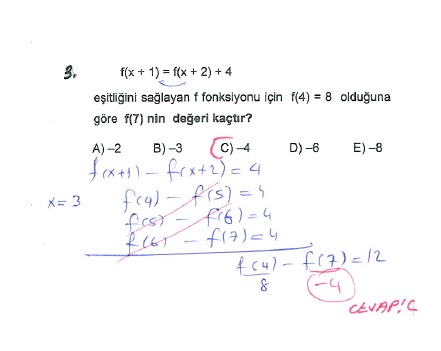 3. f(x + 1) = f(x + 2) + 4
eşitliğini sağlayan f fonksiyonu için f(4) = 8 olduğuna
göre f(7) nin değeri kaçtır?
A) –2 B) –3 C) –4 D) –6 E) –8
f(x+1) - f(x+2) = 4
x=3 f(4) - f(5) = 4
f(5) - f(6) = 4
f(6) - f(7) = 4
f(4) - f(7) = 12
8 -4
CEVAP: C